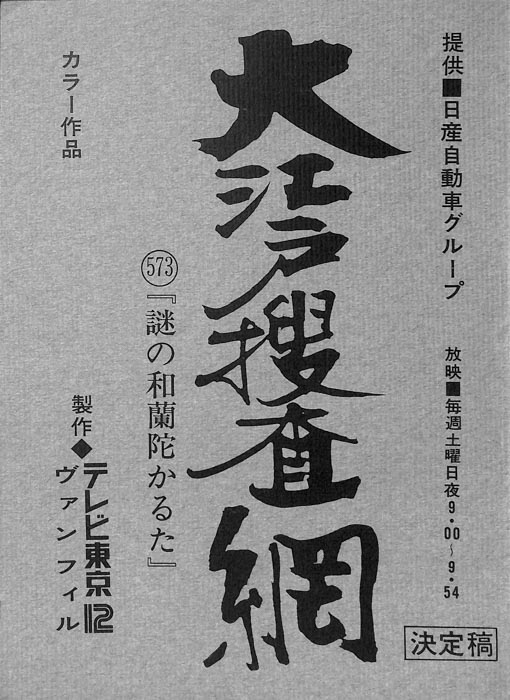 提供■日産自動車グループ
放映■毎週土曜日夜9・00～9・54
決定稿
大江戸捜査網
573『謎の和蘭陀かるた』
カラー作品
製作◆テレビ東京12
ヴァンフィル